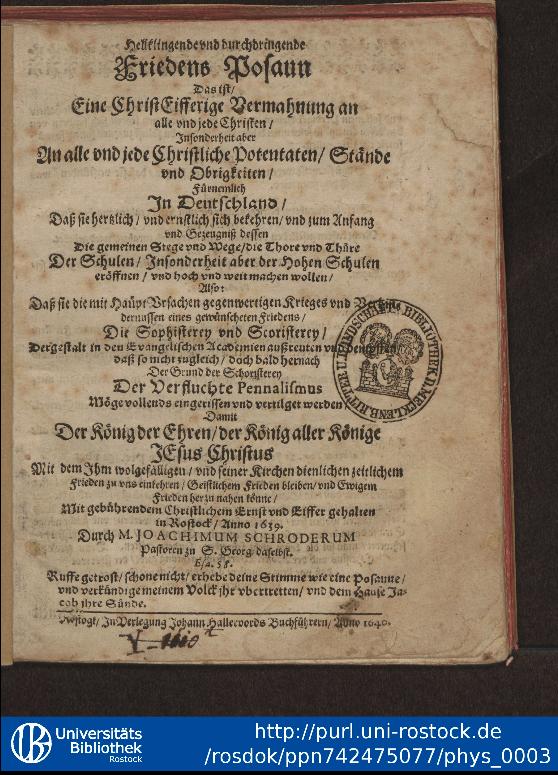 Hellklingende vnd durchdringende
Friedens Posaun
Das ist/
Eine ChristEifferige Vermahnung an
alle vnd jede Christen/
Insonderheit aber
An alle vnd jede Christliche Potentaten/ Stände
vnd Obrigkeiten/
Fürnemlich
In Deutschland/
Daß sie hertzlich/ vnd ernstlich sich bekehren/ vnd zum Anfang
vnd Gezeugniß dessen
Die gemeinen Stege vnd Wege/ die Thore vnd Thüre
Der Schulen/ Insonderheit aber der Hohen Schulen
eröffnen/ vnd hoch vnd weit machen wollen/
Also:
Daß sie die mit Haupt-Vrsachen gegenwertigen Krieges vnd
dernussen eines gewünscheten Friendens/
Die Sophisterey vnd Scoristerey/
Dergestalt in den Evangelischen Academien außreuten vnd
daß so nicht zugleich/ doch bald hernach
Der Grund der Schoristerey
Der Verfluchte Pennalismus
Möge vollends eingerissen vnd vertilget werden
Damit
Der König der Ehren/ der König aller Könige
JEsus Christus
Mit dem Ihm wolgefälligen/ vnd seiner Kirchen dienlichen zeitlichem
Frieden zu vns einkehren/ Geistlichem Frieden bleiben/ vnd Ewigem
Frieden herzu nahen könne/
Mit gebührendem Christlichem Ernst vnd Eiffer gehalten
in Rostock/ Anno 1639.
Durch M. JOACHIMUM SCHRODERUM
Pastoren zu S. Georg daselbst.
Esa. 58.
Ruffe getrost/ schone nicht/ erhebe deine Stimme wie eine Posaune/
vnd verkündige meinem Volck jhr vbertretten/ vnd dem Hause Ja-
cob jhre Sünde.
Rostogk/ In Verlegung Johann Hallevords Buchführern/ Anno 1640.
Universitäts
Bibliothek
Rostock
http://purl.uni-rostock.de
/rosdok/ppn742475077/phys_0003